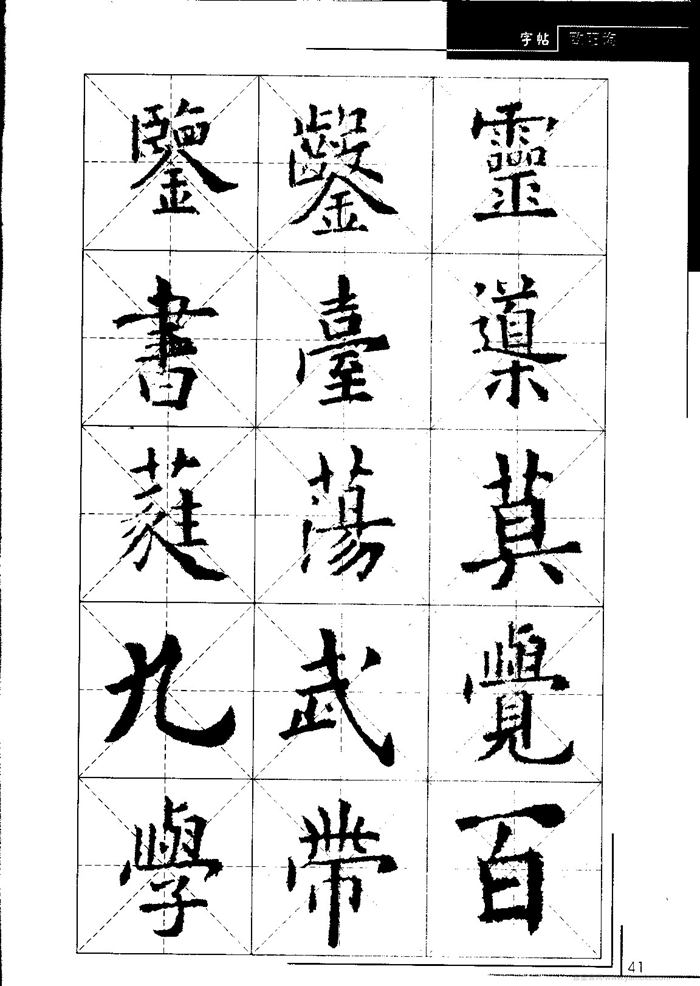 字帖 欧阳询
鑒 鑿 靈
書 臺
蕤 蕩 莫
九 武 覺
學 帶 百
41